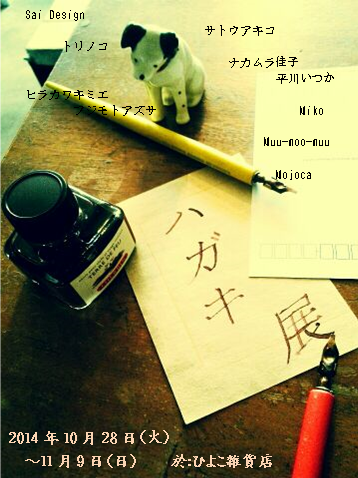 Sai Design
トリノコ
サトウアキコ
ナカムラ佳子
平川いつか
ヒラカワキミエ
フジモトアズサ
Miko
Muu-noo-nuu
Mojoca
ハガキ
展
2014年10月28日(火)
～11月9日(日)　於:ひよこ雑貨店